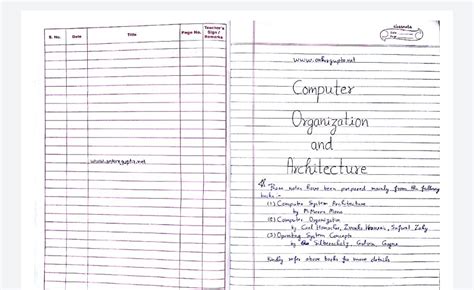 S. No. Date Title Page No. Teacher's Sign / Remarks
www.ankurgupta.net
classmate
Date
Page
www.ankurgupta.net
Computer
Organization
and
Architecture
These notes have been prepared mainly from the following
books -
(1) Computer System Architecture
by M. Morris Mano
(2) Computer Organization
by Carl Hamacher, Zvonko Vranesic, Safwat Zaky
(3) Operating System Concepts
by Silberschatz, Galvin, Gagne
Kindly refer above books for more details